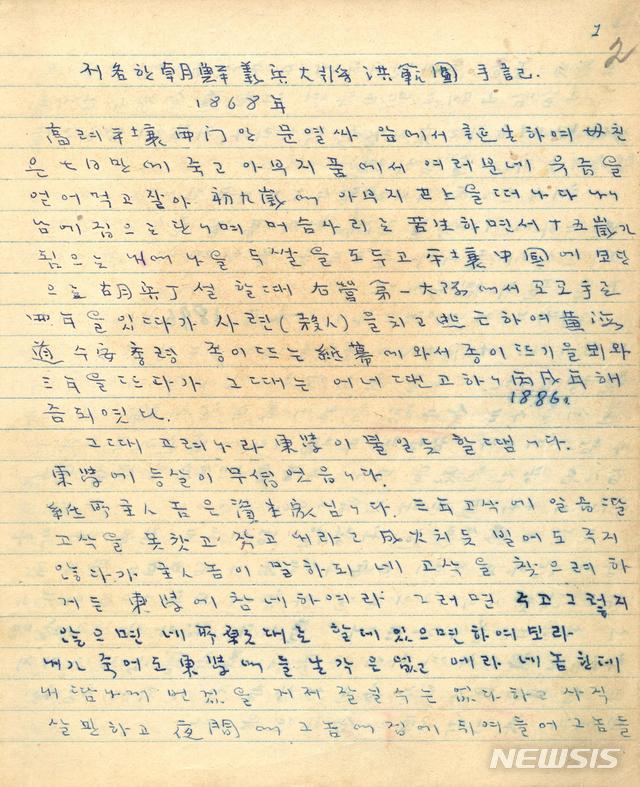 1
2
列名한 朝鮮義兵大將 洪範圖 手記.
1868年
高려 平壤 西门안 문열사 앞에서 誕生하여 母친
은 七日만에 죽고 아부지 품에서 여러분네 유즙을
얻어먹고 잘아 初九歲에 아부지 세상을 떠나다나니
남에 집으로 단니며 머슴사리로 苦生하면서 十五歲가
됨으로 나를 두쌀을 도두고 平壤 中國에 보단
으로 胡 설할대 右營 第一大隊에서 코코수로
四年을 있다가 사련(殺人)을 치고 하여 黃海
道 수안 총령 종이 뜨는 紙幕에 와서 종이 뜨기을 뵈와
三年을 뜨다가 그때는 어너 땐고 하니 丙戌年 해
1886.
즘되엿다.
그대 고려나라 東營이 불일듯 할땝니다.
東營에 등살이 무섭엇음니다.
紙所 主人놈은 資本家님니다. 三年 고삭에 일곱달
고삭을 못찾고 찾고 써라고 成火치듯 빌어도 주지
안타가 主人놈이 말하되 네 고삭을 찾으려 하
거든 東營에 참네하여라 그러면 주고 그렇지
않으면 네 所願대로 할데 있으면 하여보라
내가 죽어도 東營에 들 생각은 없고 에라 네놈한테
내 번 것을 거제 잘 수는 없다 하고 사직
살판하고 夜間에 그놈에 집에 뛰여들어 그놈들
NEWSIS